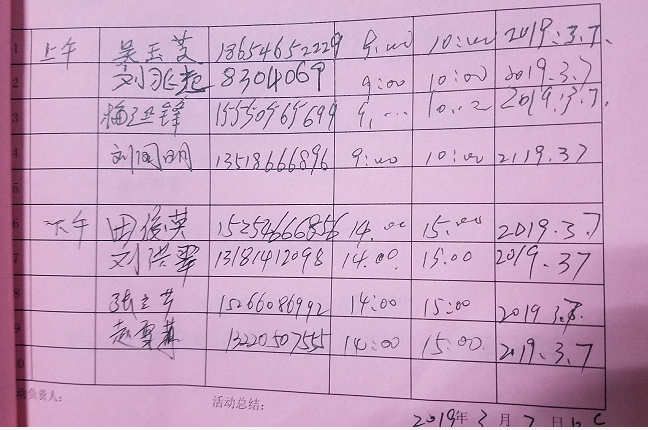 1 上午 吴玉芝 18654652229 9:00 10:00 2019.3.7.
2 8304069 9:00 10:00 2019.3.7
3 锋 15550965699 9, ... 10... 2019.3.7.
4 刘国明 13518666896 9:00 10:00 2119.37
5
6 下午 田俊英 15254666856 14.00 15.00 2019.3.7
7 刘洪翠 13181412098 14:00 15:00 2019.37
8 15266086992 14:00 15:00 2019 3.7.
9 赵 13220507555 14:00 15:00. 2019.3.7
0
动负责人: 活动总结:
2019年3月7日